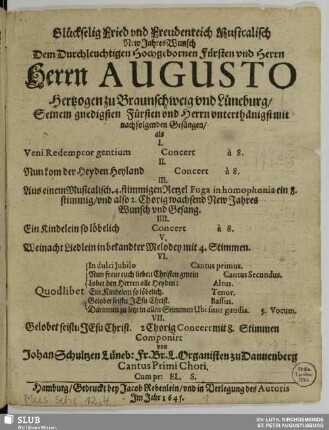 Glückselig Fried vnd Freudenreich Musicalisch
New Jahres Wunsch
Dem Durchleuchtigen Hocogebornen Fürsten vnd Herrn
Herrn AUGUSTO
Hertzogen zu Braunschweig vnd Lüneburg/
Seinem gnedigsten Fürsten vnd Herrn vnterthänigst mit
nachfolgenden Gesängen/
als
I.
Veni Redemptor gentium Concert à 8.
II.
Nun kom der Heyden Heyland Concert à 8.
III.
Aus einem Musicalisch. 4. stimmigen Retzel Fuga in homophonia ein 8.
stimmig/ vnd also 2. Chorig wachsend New Jahres
Wunsch vnd Gesang.
IIII.
Ein Kindelein so löbelich Concert à 8.
V.
Weinacht Liedlein in bekandter Melodey mit 4. Stimmen.
VI.
Quodlibet
In dulci Jubilo Cantus primus.
Nun freut euch lieben Christen gmein Cantus Secundus.
Lobet den Herren alle Heyden: Altus.
Ein Kindelein so löbelich. Tenor.
Gelobet seistu JEsu Christ. Bassus.
Darinnen zu letzt in allen Stimmen Ubi sunt gaudia. 5. Vocum.
VII.
Gelobet seistu JEsu Christ. 2 Chorig Concert mit 8. Stimmen
Componirt
von
Johan Schultzen Lüneb: Fr: Br: L. Organisten zu Dannenberg
Cantus Primi Chori,
Cum pr: EL. S.
Hamburg/ Gedruckt bey Jacob Rebenlein/ vnd in Verlegung des Autoris
Im Jahr 1645.
SLUB
Wir führen Wissen.
EV.-LUTH. KIRCHGEMEINDE
ST. PETRI AUGUSTUSBURG